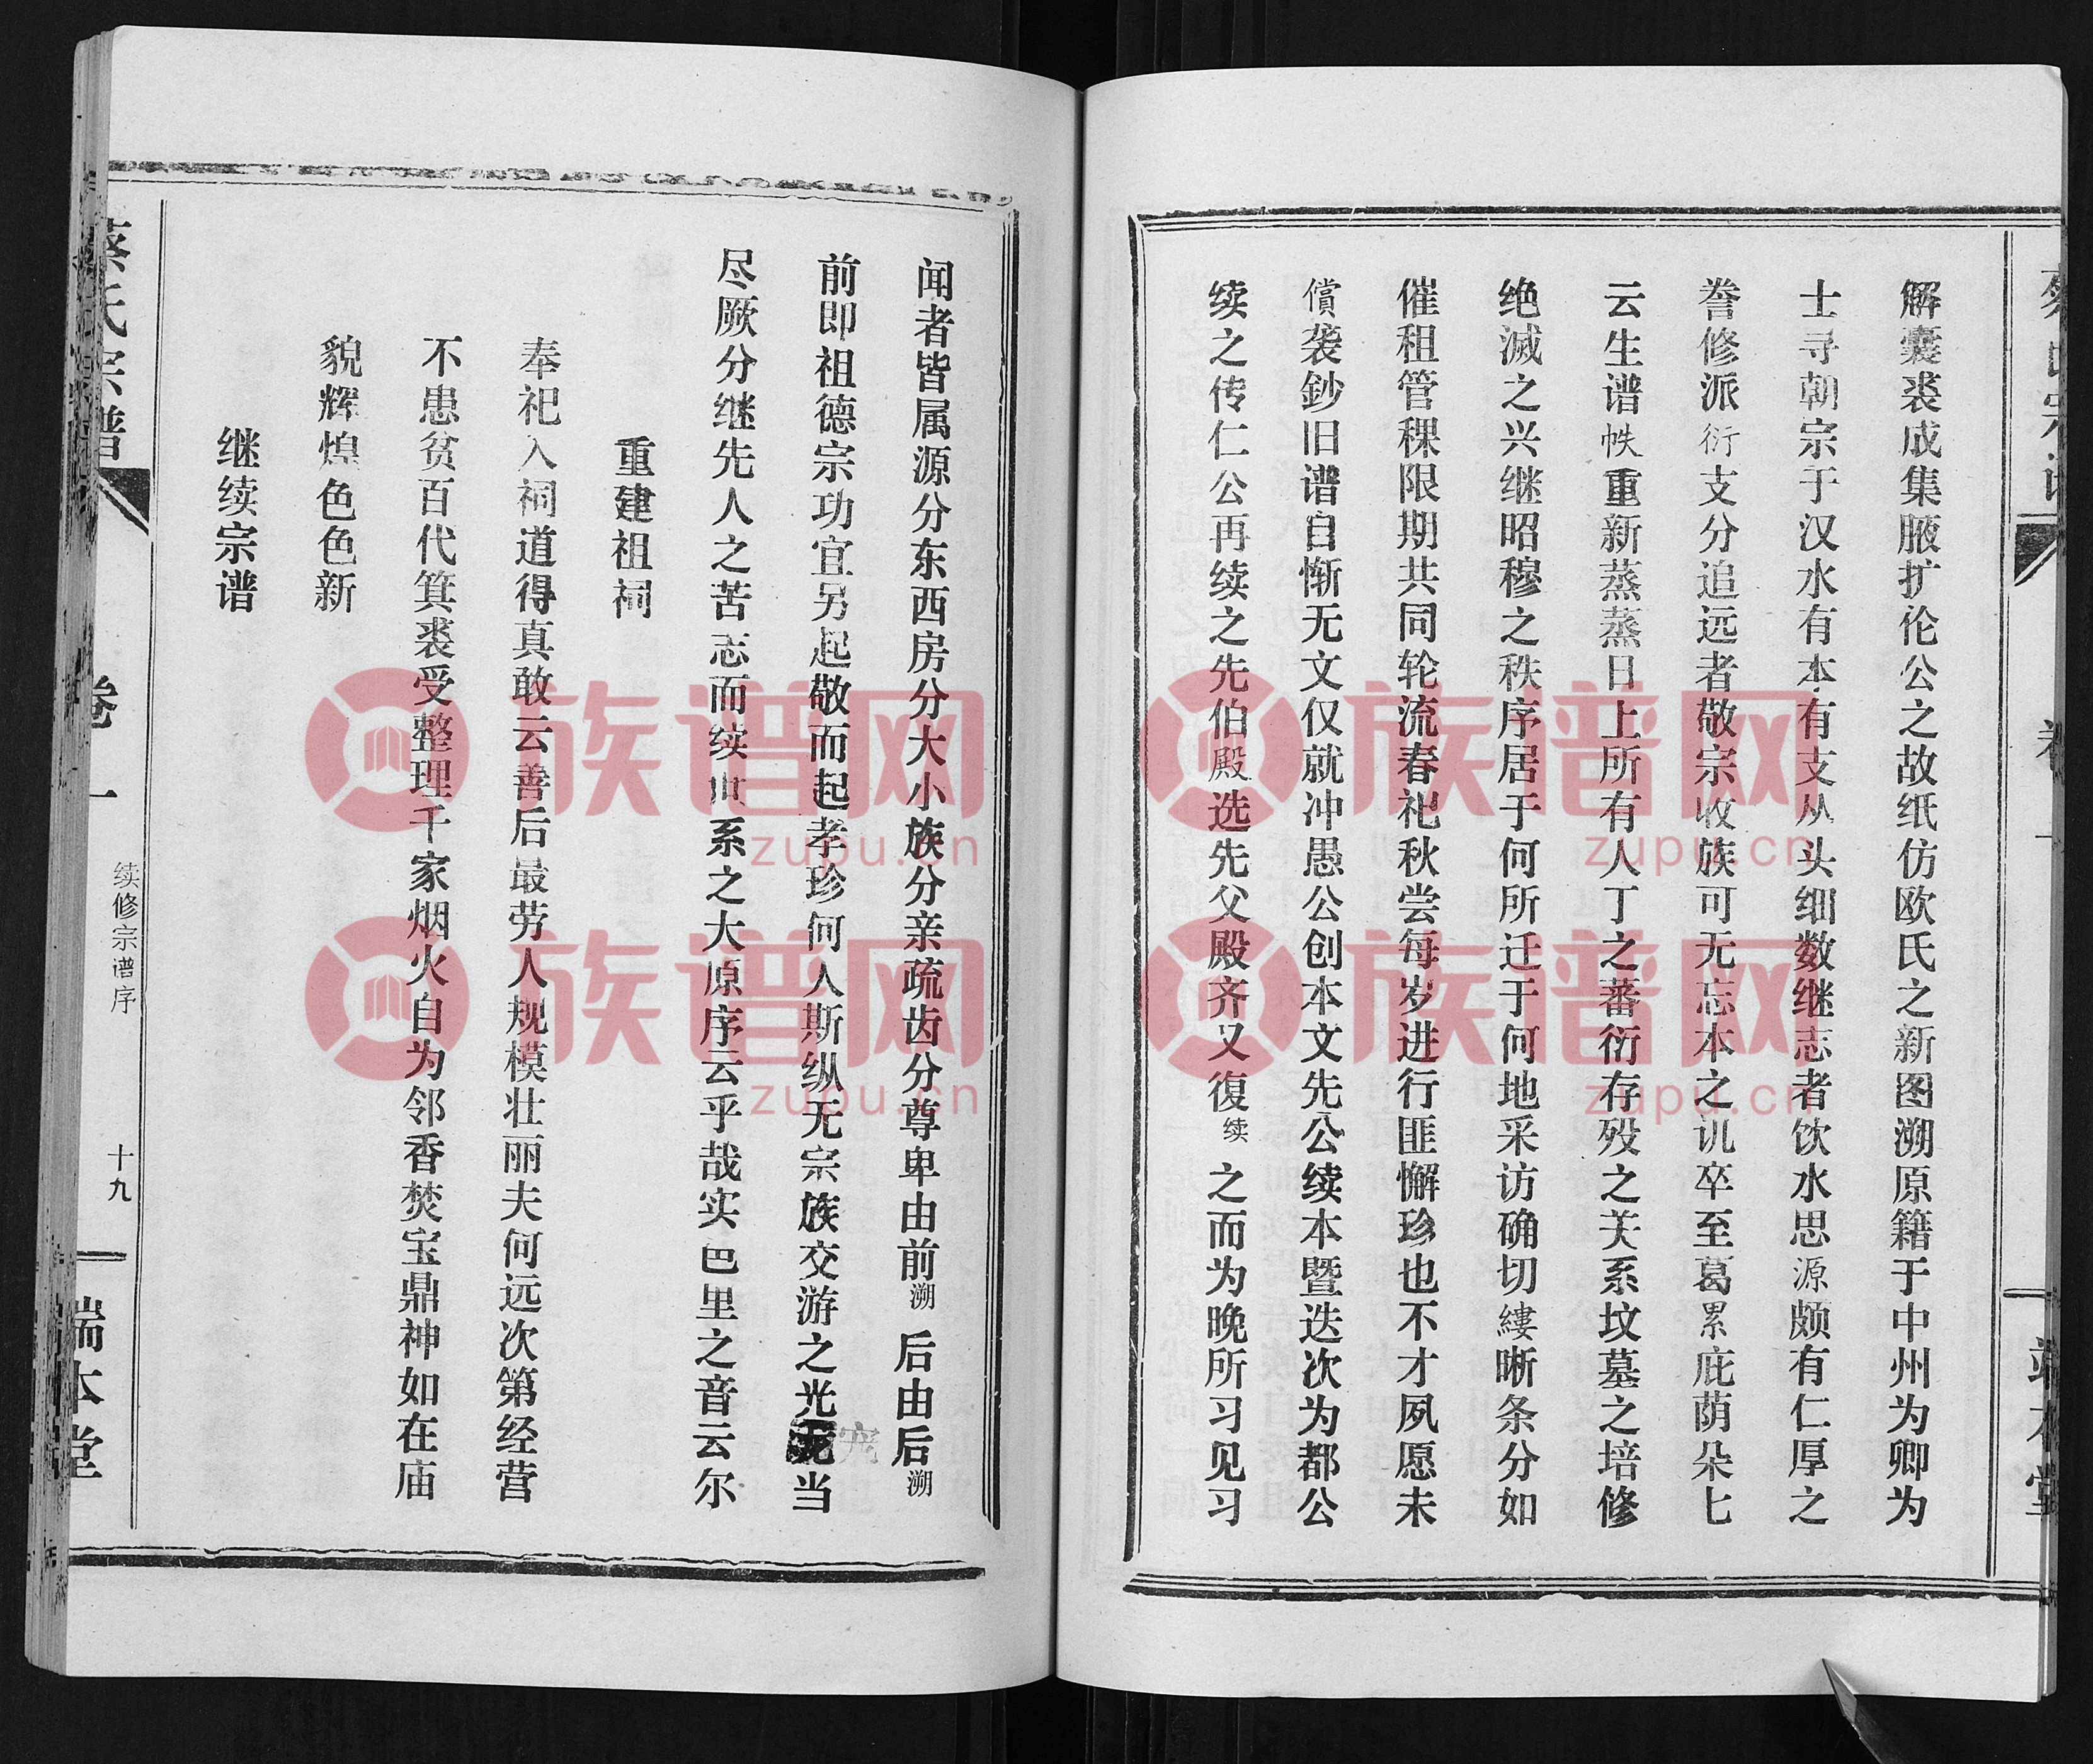 解囊裘成集腋扩伦公之故纸仿欧氏之新图溯原籍于中州为卿为
士寻朝宗于汉水有本有支从头细数继志者饮水思源颇有仁厚之
誉修派衍支分追远者敬宗收族可无忘本之讥卒至葛累庇荫朵七
云生谱帙重新蒸蒸日上所有人丁之蕃衍存殁之关系坟墓之培修
绝滅之兴继昭穆之秩序居于何所迁于何地采访确切缕晰条分如
催租管稞限期共同轮流春祀秋尝每岁进行匪懈珍也不才夙愿未
償袭鈔旧谱自惭无文仅就冲愚公创本文先公续本暨迭次为都公
续之传仁公再续之先伯殿选先父殿齐又復续之而为晚所习见习
闻者皆属源分东西房分大小族分亲疏齿分尊卑由前溯后由后溯
前即祖德宗功宜另起敬而起孝珍何人斯纵无宗族交游之光宠当
尽厥分继先人之苦志而续世系之大原序云乎哉实巴里之音云尔
重建祖祠
奉祀入祠道得真敢云善后最劳人规模壮丽夫何远次第经营
不患贫百代箕裘受整理千家烟火自为邻香焚宝鼎神如在庙
貌辉煌色色新
继续宗谱
蔡氏宗谱
卷一
续修宗谱序
十九
端本堂
族谱网
zupu.cn
族谱网
zupu.cn
族谱网
zupu.cn
族谱网
zupu.cn